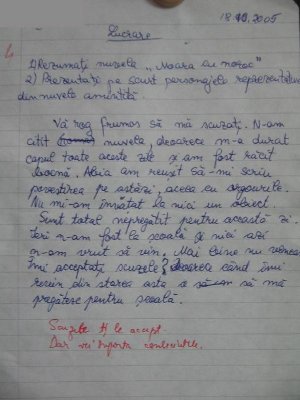 18.10.2005
Lucrare
4
1) Rezumați nuvela „Moara cu noroc"
2) Prezentați pe scurt personajele reprezentative
din nuvela amintită.
Vă rog frumos să mă scuzați. N-am
citit nuvela, deoarece m-a durut
capul toate aceste zile și am fost răcit
boacnă. Abia am reușit să-mi scriu
povestirea pe astăzi, aceea cu
Nu mi-am învățat la nici un obiect.
Sunt total nepregătit pentru această zi.
Ieri n-am fost la școală și nici azi
n-am vrut să vin. Mai bine nu veneam.
Îmi acceptați scuzele? deoarece când îmi
revin din starea asta o să am să mă
pregătesc pentru școală.
Scuzele ți le accept.
Dar vei suporta consecințele.